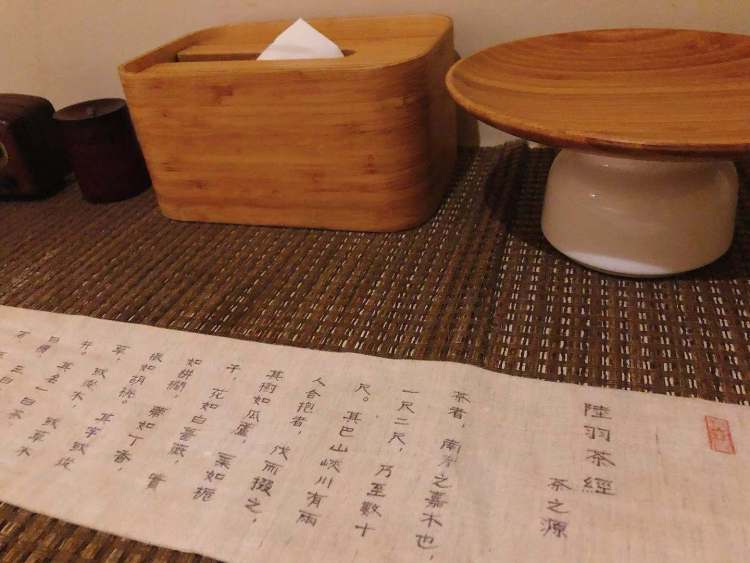 陸羽茶經
茶之源
茶者，南方之嘉木也，
一尺二尺，乃至數十
尺。其巴山峽川有兩
人合抱者，伐而掇之，
其樹如瓜蘆，葉如梔
子，花如白薔薇，實
如栟櫚，蒂如丁香，
根如胡桃。其字或從
草，或從木，或草木
并。其名一曰茶
曰檟，三曰